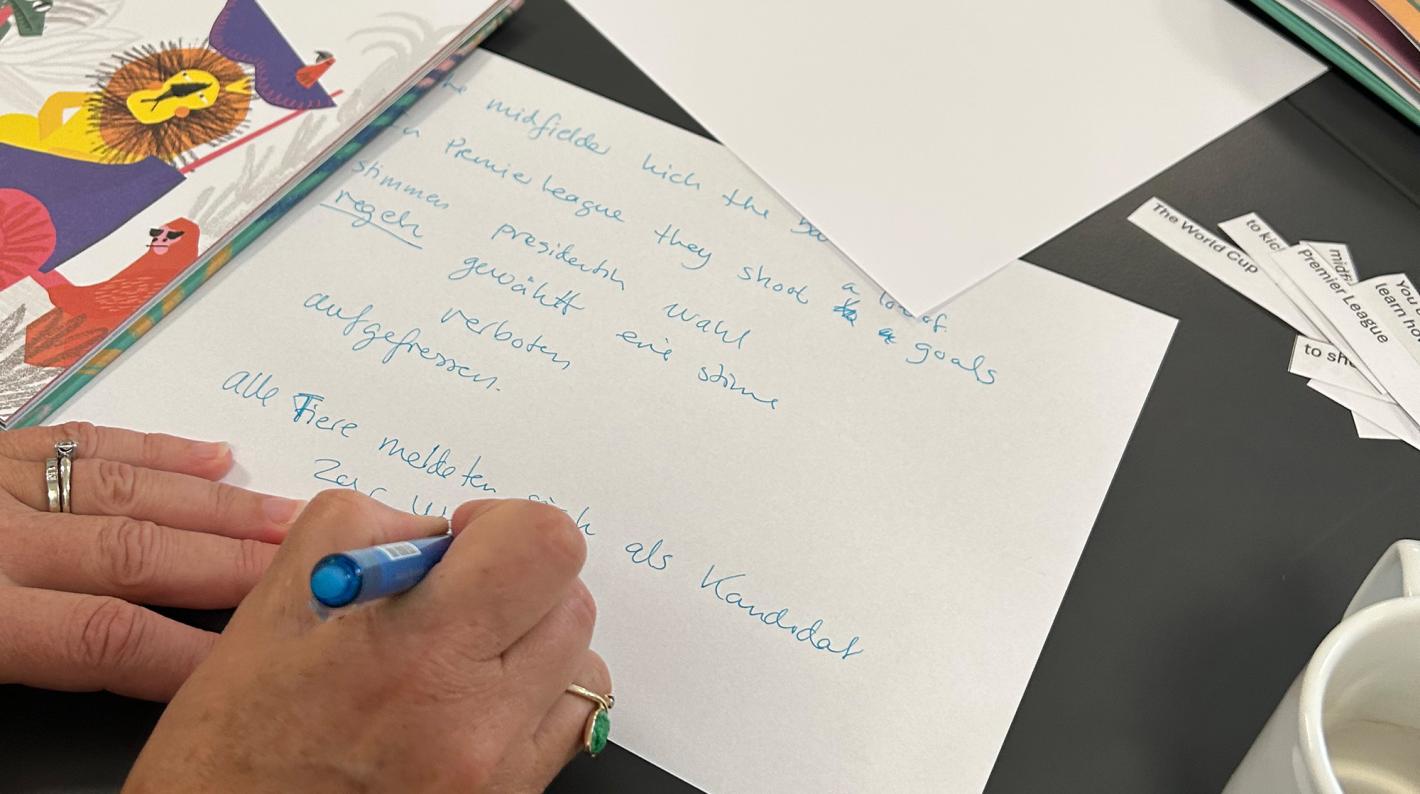 midfielder kick the
Premier League they shoot a lot of goals
stimmen presidentin wahl
regeln gewählt eine stime
verboten
aufgefressen.
alle Tiere meldeten sich als Kandidat
zur
The World Cup
to kic
midfi
Premier League
You
learn ho
to sho